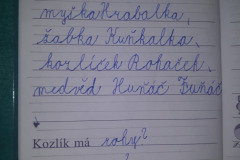 myška Hrabalka,
žabka Kuňkalka,
kozlíček Rohaček,
medvěd Huňáč Buňáč
Kozlík má rohy?